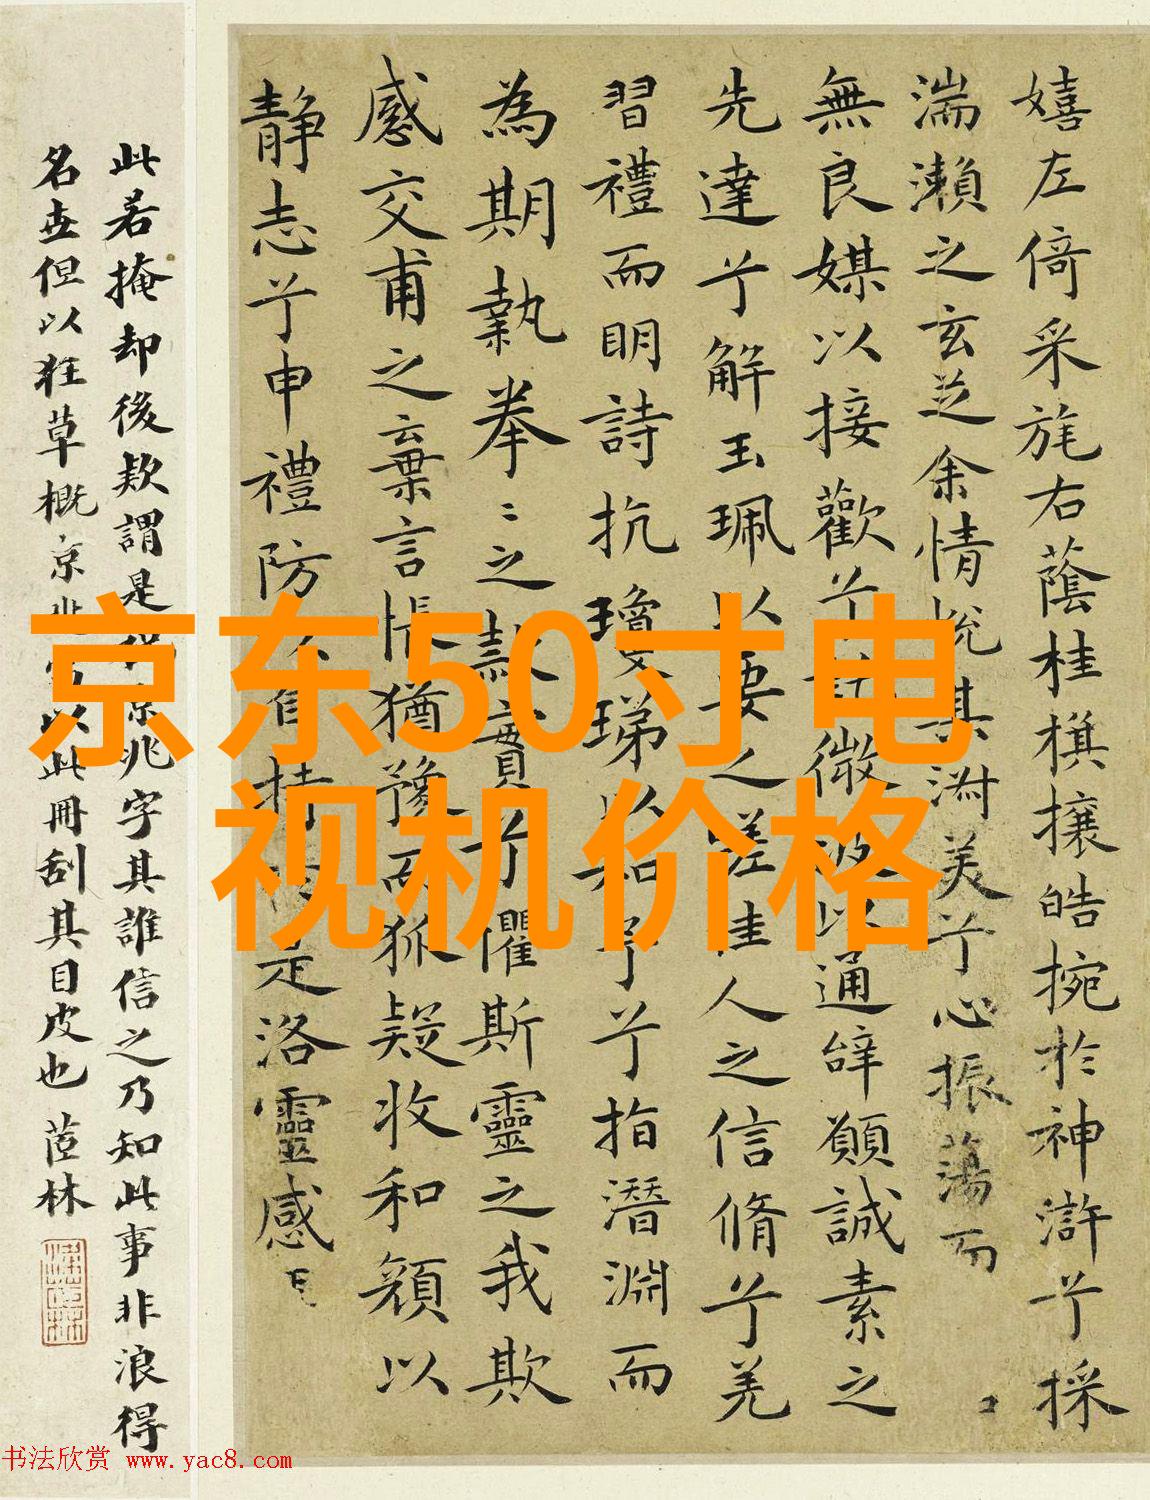 嬉左倚采旄右蔭桂旗攘皓捥於神滸兮採
湍瀨之玄芝余情悅其淑美兮心振蕩而
無良媒以接歡兮託微波以通辭願誠素之
先達兮解玉珮以要之嗟佳人之信脩兮羌
習禮而明詩抗瓊珶以和予兮指潛淵而
為期執拳〻之款實兮懼斯靈之我欺
感交甫之棄言悵猶豫而狐疑收和顏以
靜志兮申禮防以自持於是洛靈感
此若掩却後欵謂是
兆字其誰信之乃知此事非浪得
名世但以狂草概京兆
以此冊刮其目皮也 茝林
京东50寸电
视机价格
书法欣赏 www.yac8.com